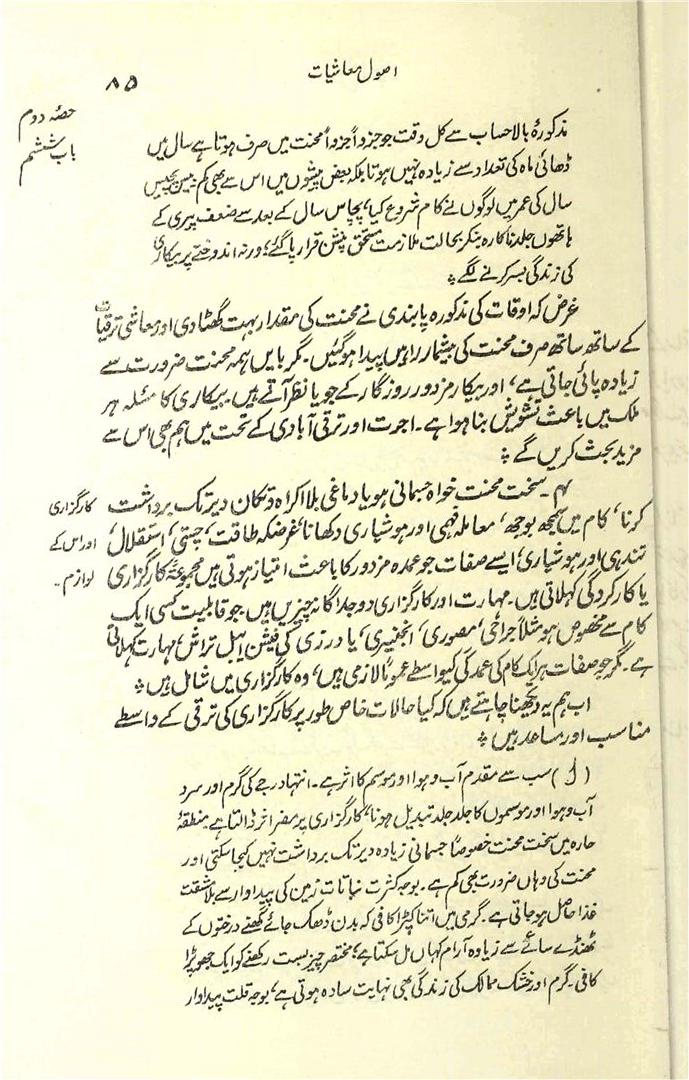 اصول معاشیات
۸۵
حصۂ دوم
باب ششم
مذکورۂ بالا حساب سے کل وقت جو جزواً جزواً محنت میں صرف ہوتا ہے سال میں
ڈھائی ماہ کی تعداد سے زیادہ نہیں ہوتا بلکہ بعض پیشوں میں اس سے بھی کم بیس پچیس
سال کی عمر میں لوگوں نے کام شروع کیا، پچاس سال کے بعد سے ضعف پیری کے
ہاتھوں جلد ناکارہ بنکر بحالت ملازمت مستحق پنشن قرار پا گئے؛ ورنہ اندوختے پر بیکاری
کی زندگی بسر کرنے لگے۔
غرض کہ اوقات کی مذکورہ پابندی نے محنت کی مقدار بہت گھٹا دی اور معاشی ترقیات
کے ساتھ ساتھ صرف محنت کی بیشمار راہیں پیدا ہوگئیں۔ مگر بایں ہمہ محنت ضرورت سے
زیادہ پائی جاتی ہے، اور بیکار مزدور روزگار کے جویا نظر آتے ہیں۔ بیکاری کا مسئلہ ہر
ملک میں باعث تشویش بنا ہوا ہے۔ اجرت اور ترقی آبادی کے تحت میں ہم بھی اس سے
مزید بحث کریں گے۔
۴۔ سخت محنت خواہ جسمانی ہو یا دماغی بلا اکراہ و تکان دیر تک برداشت
کارگزاری
کرنا، کام میں سمجھ بوجھ، معاملہ فہمی اور ہوشیاری دکھانا، غرضکہ طاقت، چستی، استقلال،
اور اس کے
تندہی اور ہوشیاری، ایسے صفات جو عمدہ مزدور کا باعث امتیاز ہوتی ہیں مجموعۃً کارگزاری
لوازم۔
یا کارکردگی کہلاتی ہیں۔ مہارت اور کارگزاری دو جداگانہ چیزیں ہیں جو قابلیت کسی ایک
کام سے مخصوص ہو مثلاً جراحی، مصوری، انجنیری، یا درزی کی فیشن ایبل تراش، مہارت کہلاتی
ہے۔ مگر جو صفات ہر ایک کام کی عمدگی کیواسطے عموماً لازمی ہیں، وہ کارگزاری میں شامل ہیں۔
اب ہم یہ دیکھنا چاہتے ہیں کہ کیا حالات خاص طور پر کارگزاری کی ترقی کے واسطے
مناسب اور مساعد ہیں۔
(ا) سب سے مقدم آب و ہوا اور موسم کا اثر ہے۔ انتہا درجے کی گرم اور سرد
آب و ہوا اور موسموں کا جلد جلد تبدیل ہونا، کارگزاری پر مضر اثر ڈالتا ہے۔ منطقۂ
حارہ میں سخت محنت خصوصاً جسمانی زیادہ دیر تک برداشت نہیں کیجا سکتی اور
محنت کی وہاں ضرورت بھی کم ہے۔ بوجہ کثرت نباتات زمین کی پیداوار سے بلا مشقت
غذا حاصل ہو جاتی ہے۔ گرمی میں اتنا کپڑا کافی کہ بدن ڈھک جائے گھنے درختوں کے
ٹھنڈے سائے سے زیادہ آرام کہاں مل سکتا ہے؛ مختصر چیز بست رکھنے کو ایک جھوپڑا
کافی۔ گرم اور خشک ممالک کی زندگی بھی نہایت سادہ ہوتی ہے، بوجہ قلت پیداوار